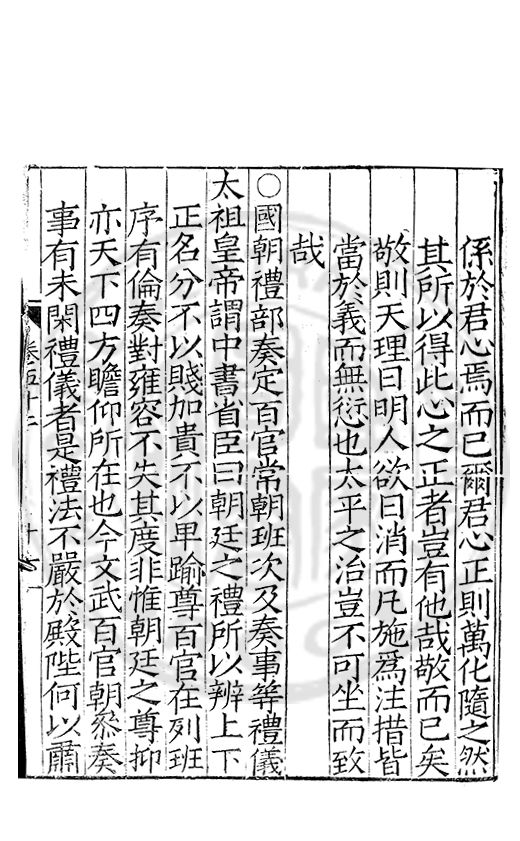 係於君心焉而已爾君心正則萬化隨之然
其所以得此心之正者豈有他哉敬而已矣
敬則天理日明人欲日消而凡施爲注措皆
當於義而無愆也太平之治豈不可坐而致
哉
○國朝禮部奏定百官常朝班次及奏事等禮儀
太祖皇帝謂中書省臣曰朝廷之禮所以辨上下
正名分不以賤加貴不以卑踰尊百官在列班
序有倫奏對雍容不失其度非惟朝廷之尊抑
亦天下四方瞻仰所在也今文武百官朝叅奏
事有未閑禮儀者是禮法不嚴於殿陛何以肅
卷五十二